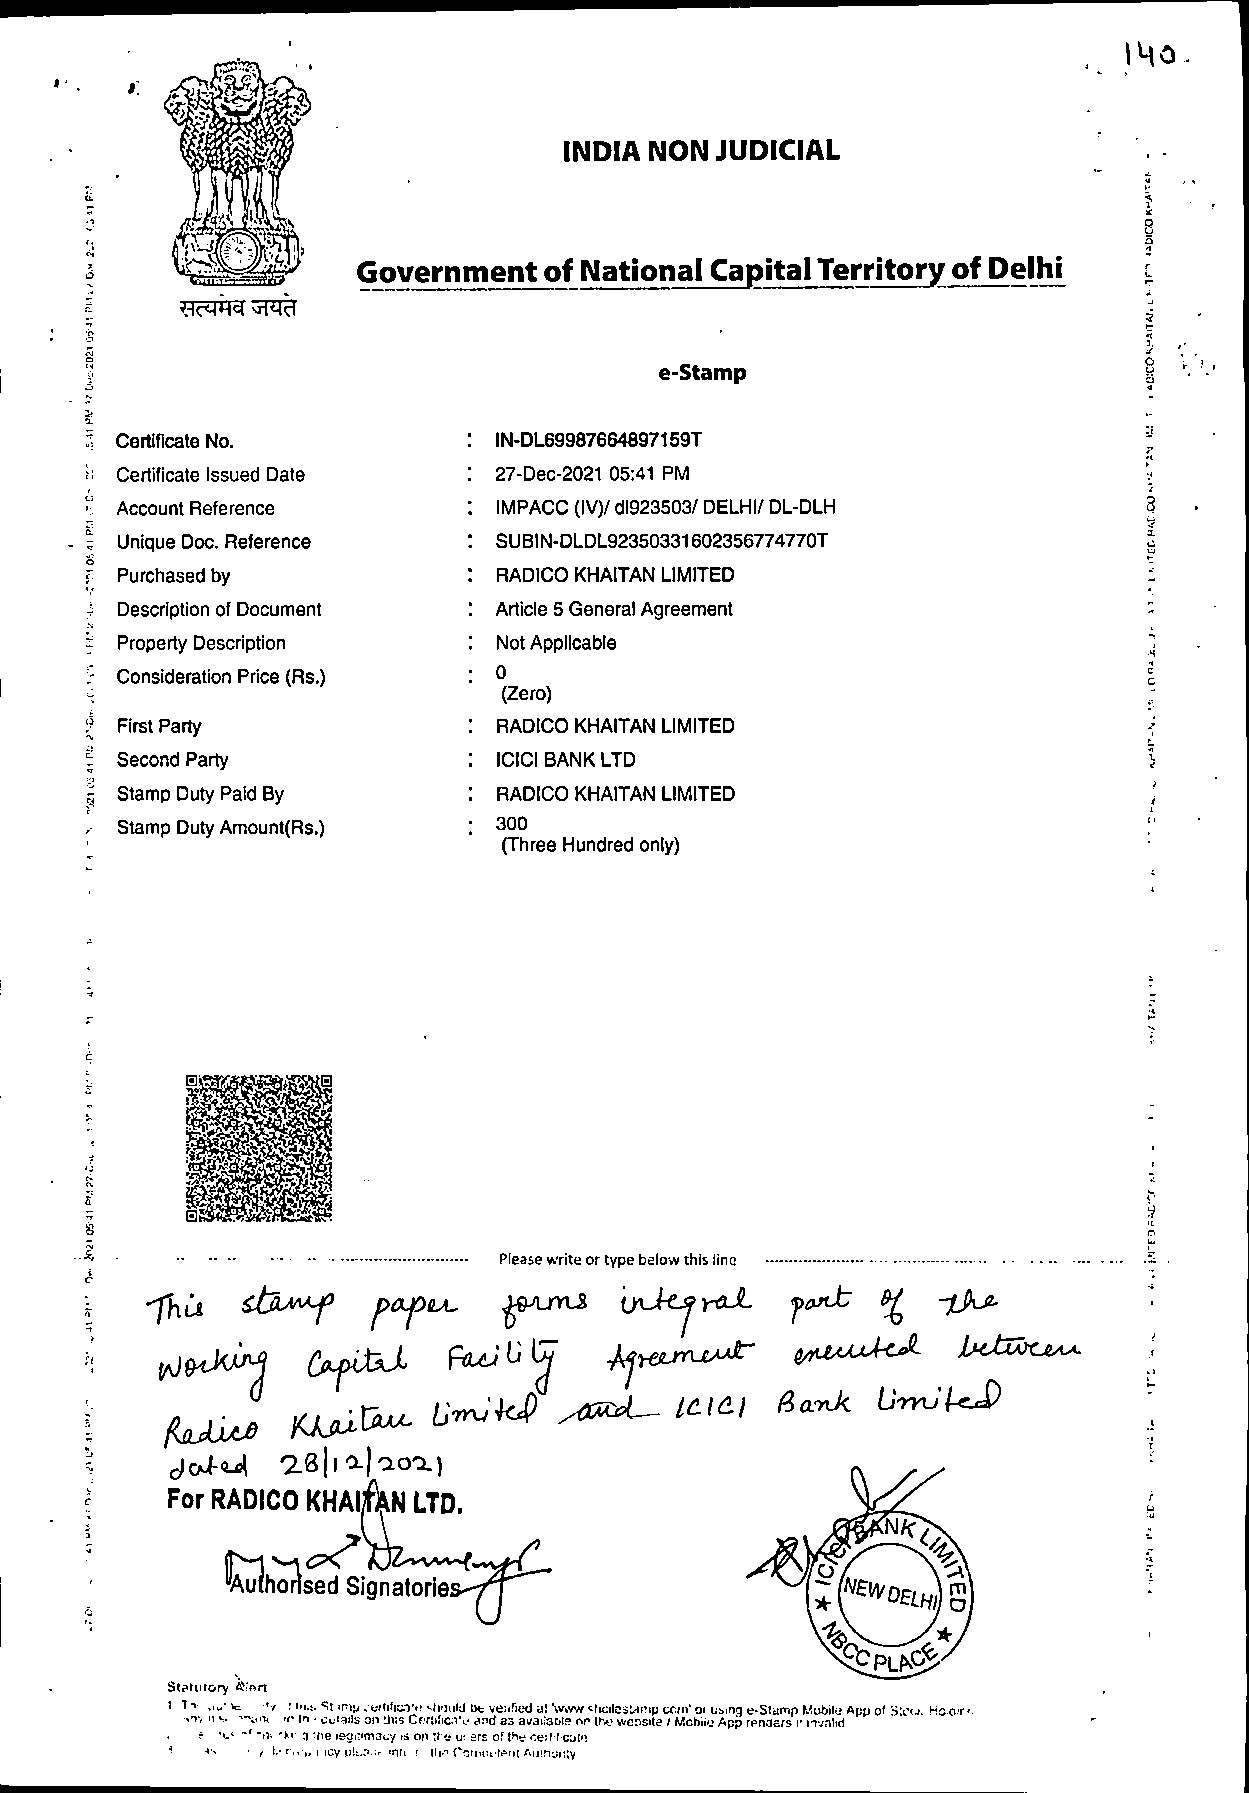 140.
INDIA NON JUDICIAL
Government of National Capital Territory of Delhi
सत्यमेव जयते
e-Stamp
Certificate No. : IN-DL69987664897159T
Certificate Issued Date : 27-Dec-2021 05:41 PM
Account Reference : IMPACC (IV)/ dl923503/ DELHI/ DL-DLH
Unique Doc. Reference : SUBIN-DLDL92350331602356774770T
Purchased by : RADICO KHAITAN LIMITED
Description of Document : Article 5 General Agreement
Property Description : Not Applicable
Consideration Price (Rs.) : 0
(Zero)
First Party : RADICO KHAITAN LIMITED
Second Party : ICICI BANK LTD
Stamp Duty Paid By : RADICO KHAITAN LIMITED
Stamp Duty Amount(Rs.) : 300
(Three Hundred only)
Please write or type below this line
This stamp paper forms integral part of the
Working Capital Facility Agreement executed between
Radico Khaitan Limited and ICICI Bank Limited
dated 28/12/2021
For RADICO KHAITAN LTD.
Authorised Signatories
ICICI BANK LIMITED
NEW DELHI
★ NBCC PLACE ★
Statutory Alert
1. should be verified at 'www.shcilestamp.com' or using e-Stamp Mobile App of Stock Ho
details on this Certificate and as available on the website / Mobile App renders it invalid
the legitimacy is on the users of the certificate
the Competent Authority